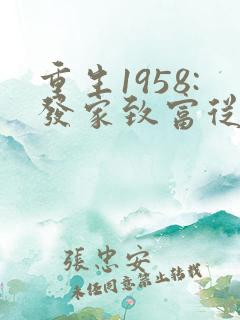 重生1958:
發家致富從
張忠安
未經同意禁止轉載